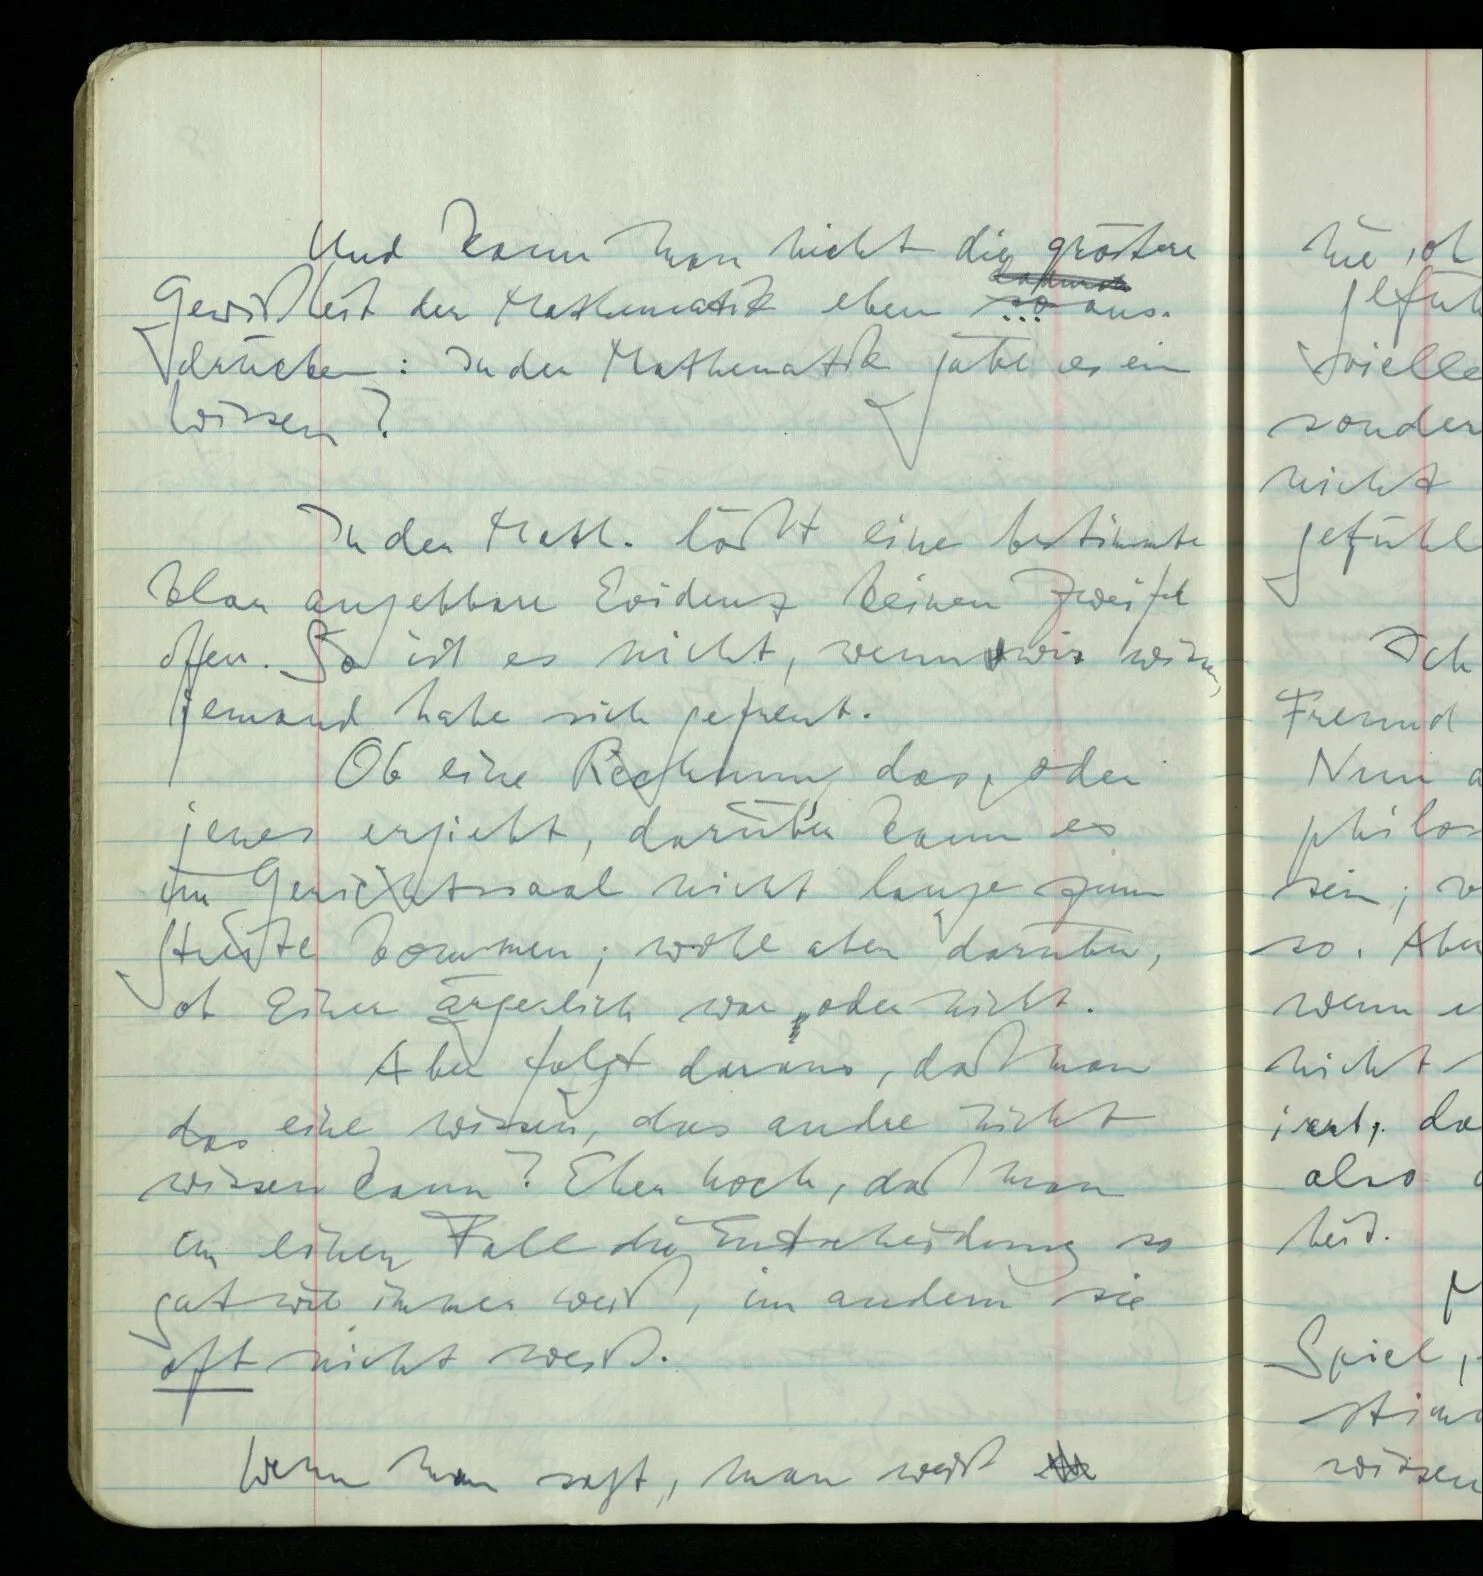 Und kann man nicht die größere
Gewißheit der Mathematik eben so aus-
drücken: In der Mathematik gäbe es ein
Wissen?
In der Math. läßt eine bestimmte
klar angebbare Evidenz keinen Zweifel
offen. So ist es nicht, wenn wir wissen,
jemand habe sich gefreut.
Ob eine Rechnung das, oder
jenes ergiebt, darüber kann es
im Gerichtssaal nicht lange zum
Streite kommen; wohl aber darüber,
ob Einer ärgerlich war, oder nicht.
Aber folgt daraus, daß man
das eine wissen, das andre nicht
wissen kann? Eher noch, daß man
im einen Fall die Entscheidung so
gut wie immer weiß, im andern sie
oft nicht weiß.
Wenn man sagt, man weiß
nie, ob
gefüh
vielle
sonder
nicht
gefühl
Ich
Freund
Nun a
philos
sein; w
so. Aber
wenn e
nicht
irrt, da
also
heit.
Spiel,
stim
wissen